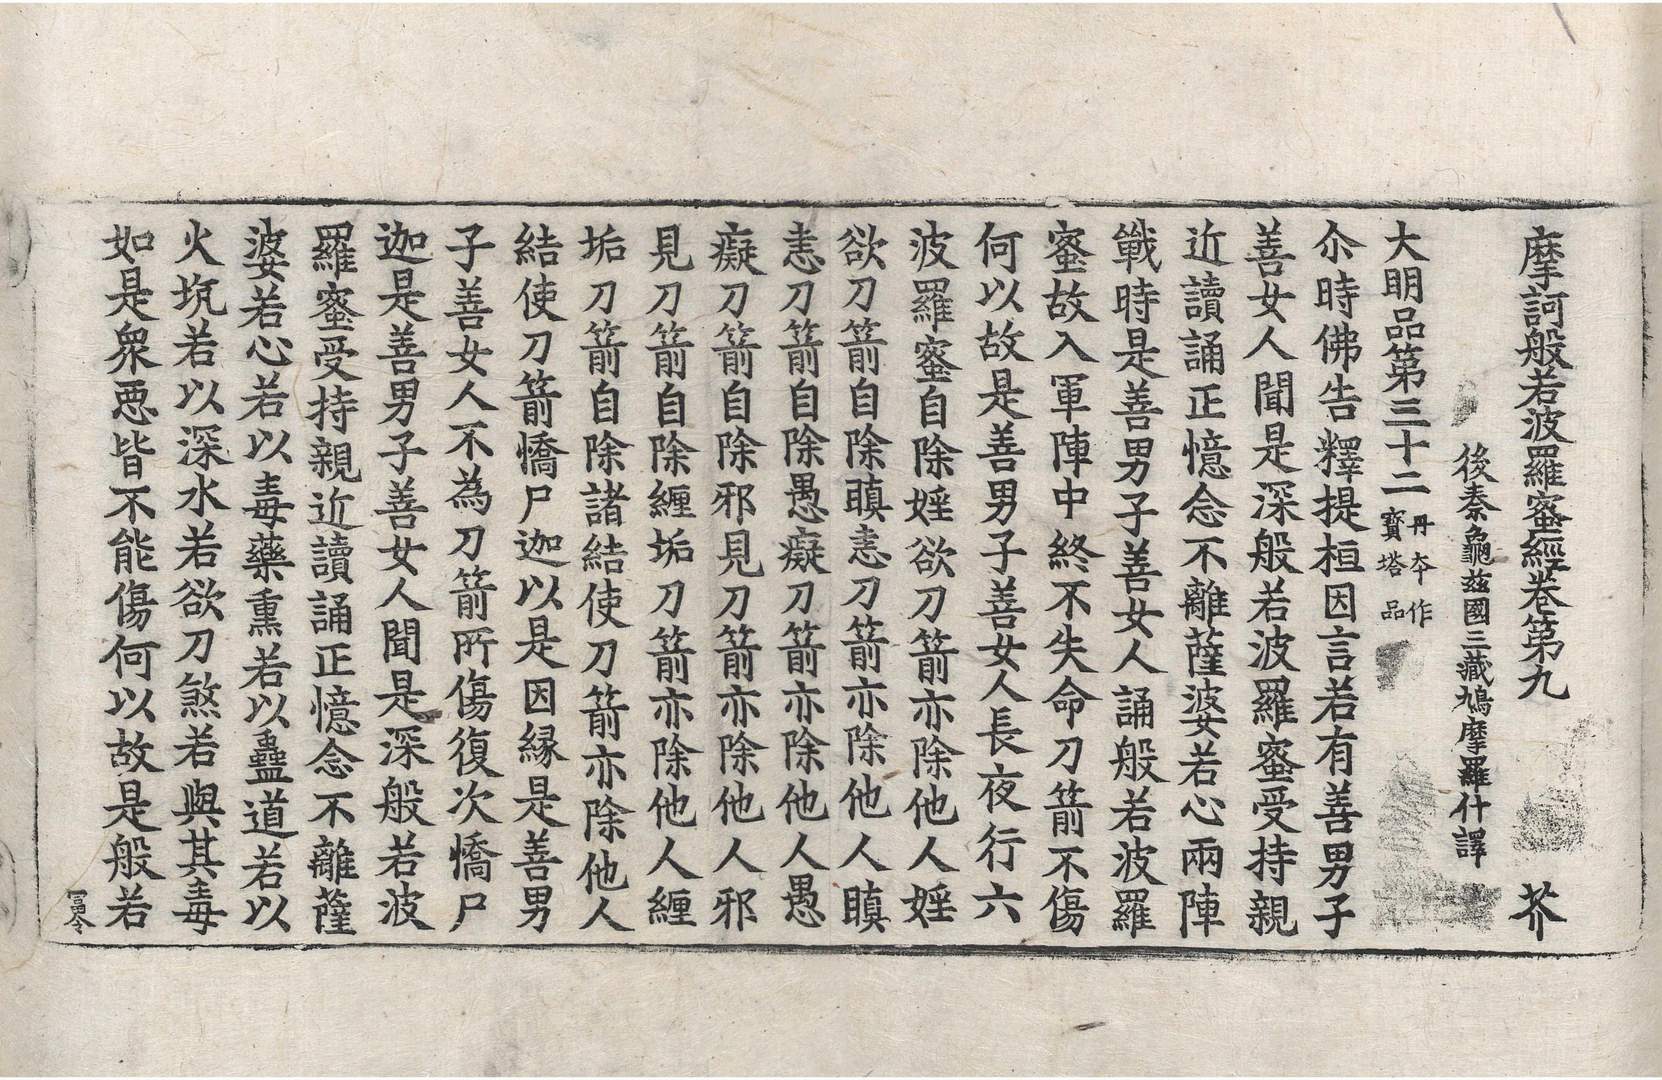 摩訶般若波羅蜜經卷第九　芥
後秦龜茲國三藏鳩摩羅什譯
大明品第三十二 丹夲作寳塔品
尒時佛告釋提桓因言若有善男子
善女人聞是深般若波羅蜜受持親
近讀誦正憶念不離薩婆若心兩陣
戰時是善男子善女人誦般若波羅
蜜故入軍陣中終不失命刀箭不傷
何以故是善男子善女人長夜行六
波羅蜜自除婬欲刀箭亦除他人婬
欲刀箭自除瞋恚刀箭亦除他人瞋
恚刀箭自除愚癡刀箭亦除他人愚
癡刀箭自除邪見刀箭亦除他人邪
見刀箭自除纏垢刀箭亦除他人纏
垢刀箭自除諸結使刀箭亦除他人
結使刀箭憍尸迦以是因縁是善男
子善女人不為刀箭所傷復次憍尸
迦是善男子善女人聞是深般若波
羅蜜受持親近讀誦正憶念不離薩
婆若心若以毒藥熏若以蠱道若以
火坑若以深水若欲刀煞若與其毒
如是衆惡皆不能傷何以故是般若
冨令